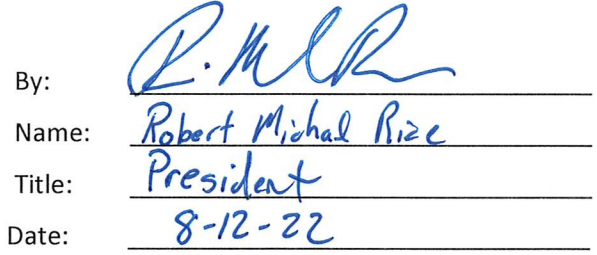 By: R. M R
Name: Robert Michal Rize
Title: President
Date: 8-12-22